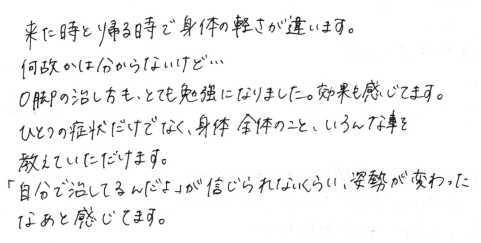 来た時と帰る時で身体の軽さが違います。
何故かは分からないけど…
O脚の治し方も、とても勉強になりました。効果も感じてます。
ひとつの症状だけでなく、身体全体のこと、いろんな事を
教えていただけます。
「自分で治してるんだよ」が信じられないくらい、姿勢が変わった
なあと感じてます。